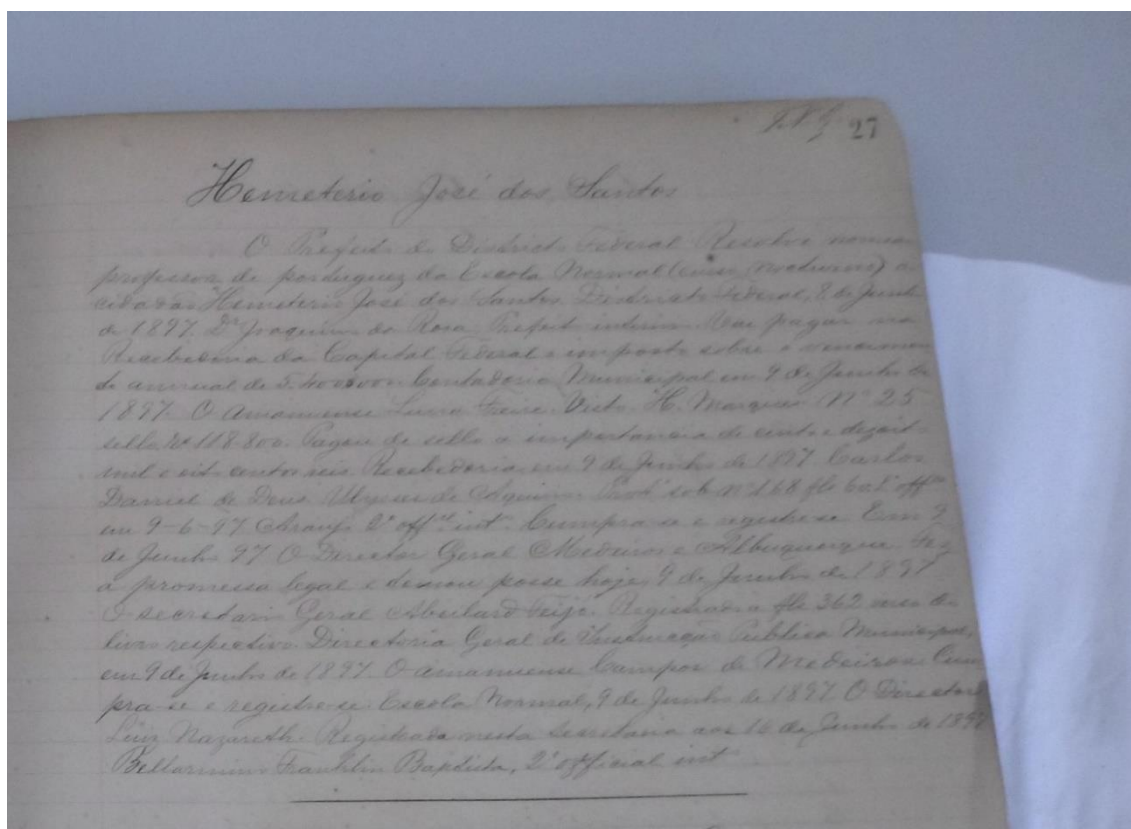 27
Hemeterio José dos Santos
O Prefeito do Districto Federal Resolve
professor de portuguez da Escola Normal (curso nocturno) o
cidadão Hemeterio José dos Santos. Districto Federal, 8 de Junho
de 1897. Dr Joaquim da Rosa Prefeito interino. pagar na
Recebedoria da Capital Federal o imposto sobre o vencimen
to annual de 5.400$000. Contadoria Municipal em 9 de Junho de
1897. O Amanuense Freire. Visto. H. Marques. Nº 25
sello Rs 118.800. Pagou de sello a importancia de cento e dezoito
mil e oito centos reis. Recebedoria em 9 de Junho de 1897. Carlos
Daniel de Deus. Ulysses de Aquino. sob nº 168 fls
em 9-6-97 Araujo 2º offal int. Cumpra-se e registre-se Em 9
de Junho 97 O Director Geral Medeiros e Albuquerque. Fez
a promessa legal e tomou posse hoje 9 de Junho de 1897
O secretario Geral Abeilard Feijó. Registrado a fls 362 do
livro respectivo. Directoria Geral de Instrucção Publica Municipal,
em 9 de Junho de 1897. O amanuense Campos de Medeiros. Cum
pra-se e registre-se. Escola Normal, 9 de Junho de 1897. O Director
Luiz Nazareth. Registrado nesta Secretaria aos 16 de Junho de 1897
Bellarmino Franklin Baptista, 2º official int